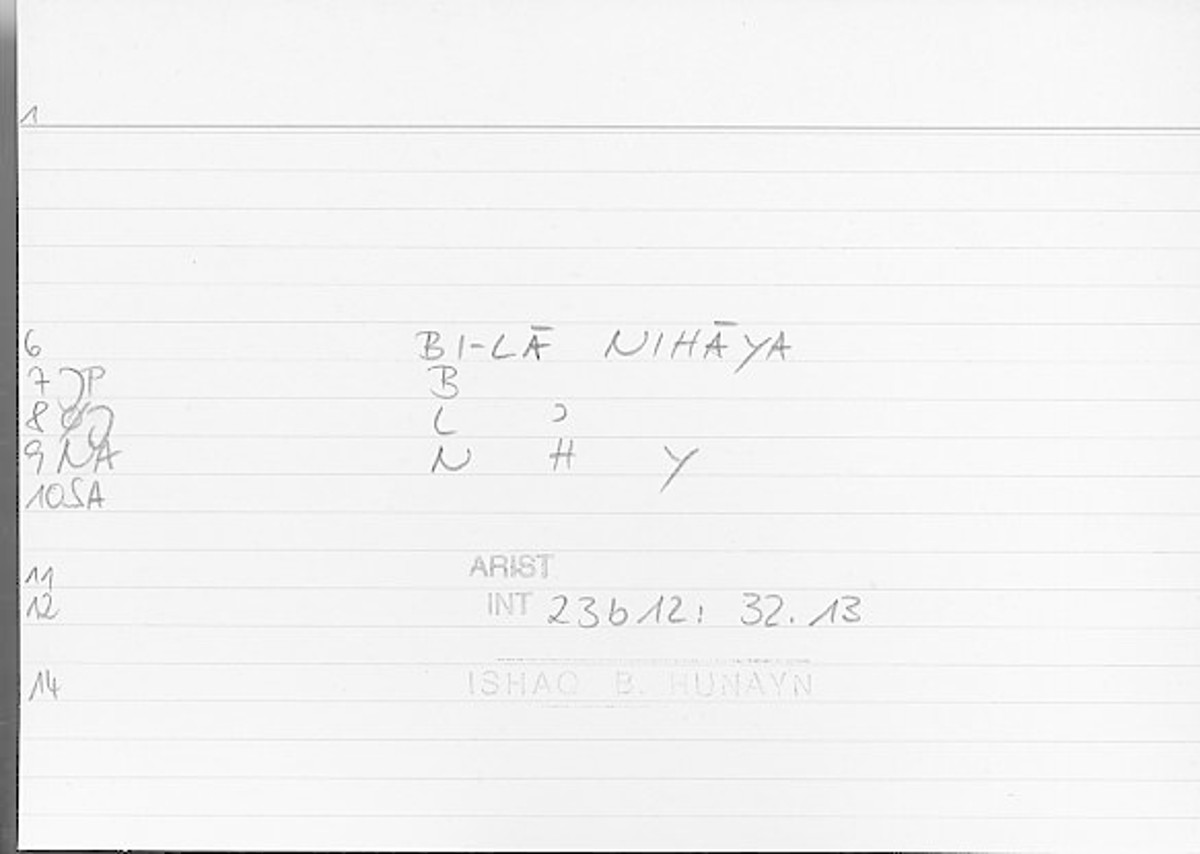 1
6 BI-LĀ NIHĀYA
7 P B
8 L Ɔ
9 NA N H Y
10 SA
11 ARIST
12 INT 23b12: 32.13
14 ISHAQ B. HUNAYN